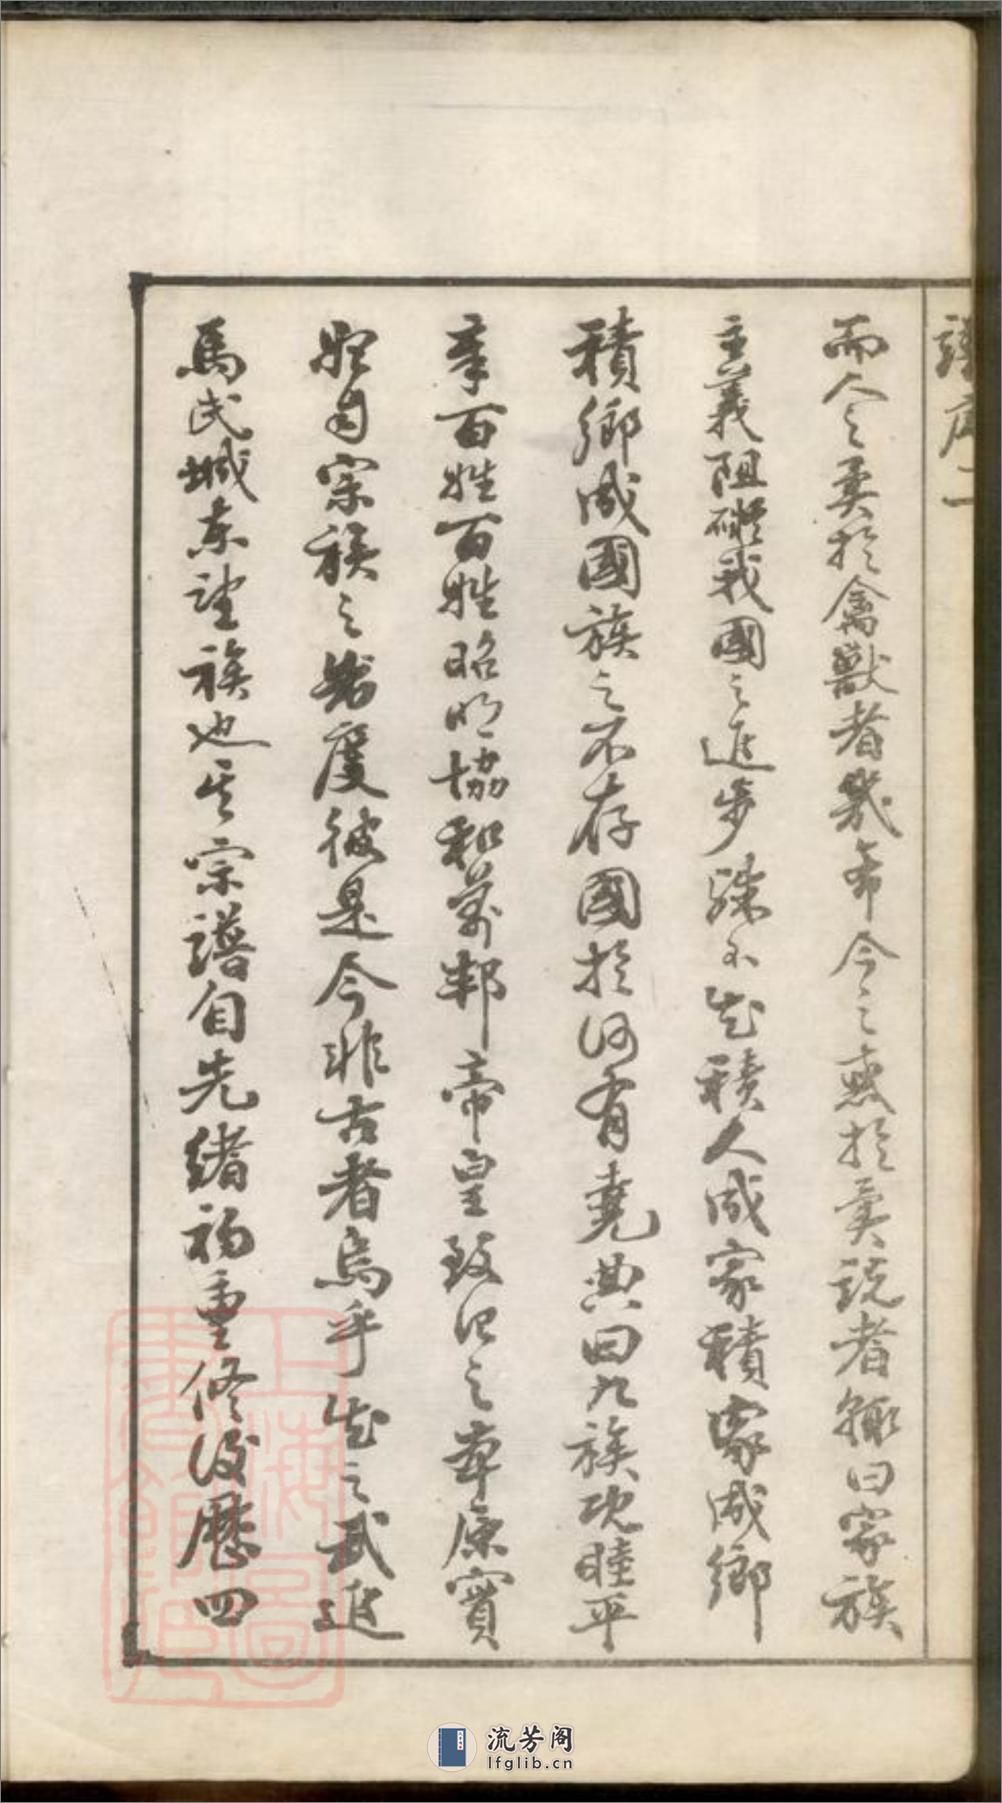 譜序二
而人之異於禽獸者幾希今之惑於異說者輒曰家族
主義阻礙我國之進步殊不知積人成家積家成鄉
積鄉成國族之不存國於何有堯典曰九族既睦平
章百姓百姓昭明協和萬邦帝皇致治之本原實
始自宗族之制度彼是今非古者烏乎知之武進
馬氏城東望族也其宗譜自先緒初重修後歷四
上海圖書館藏
流芳阁
lfglib.cn